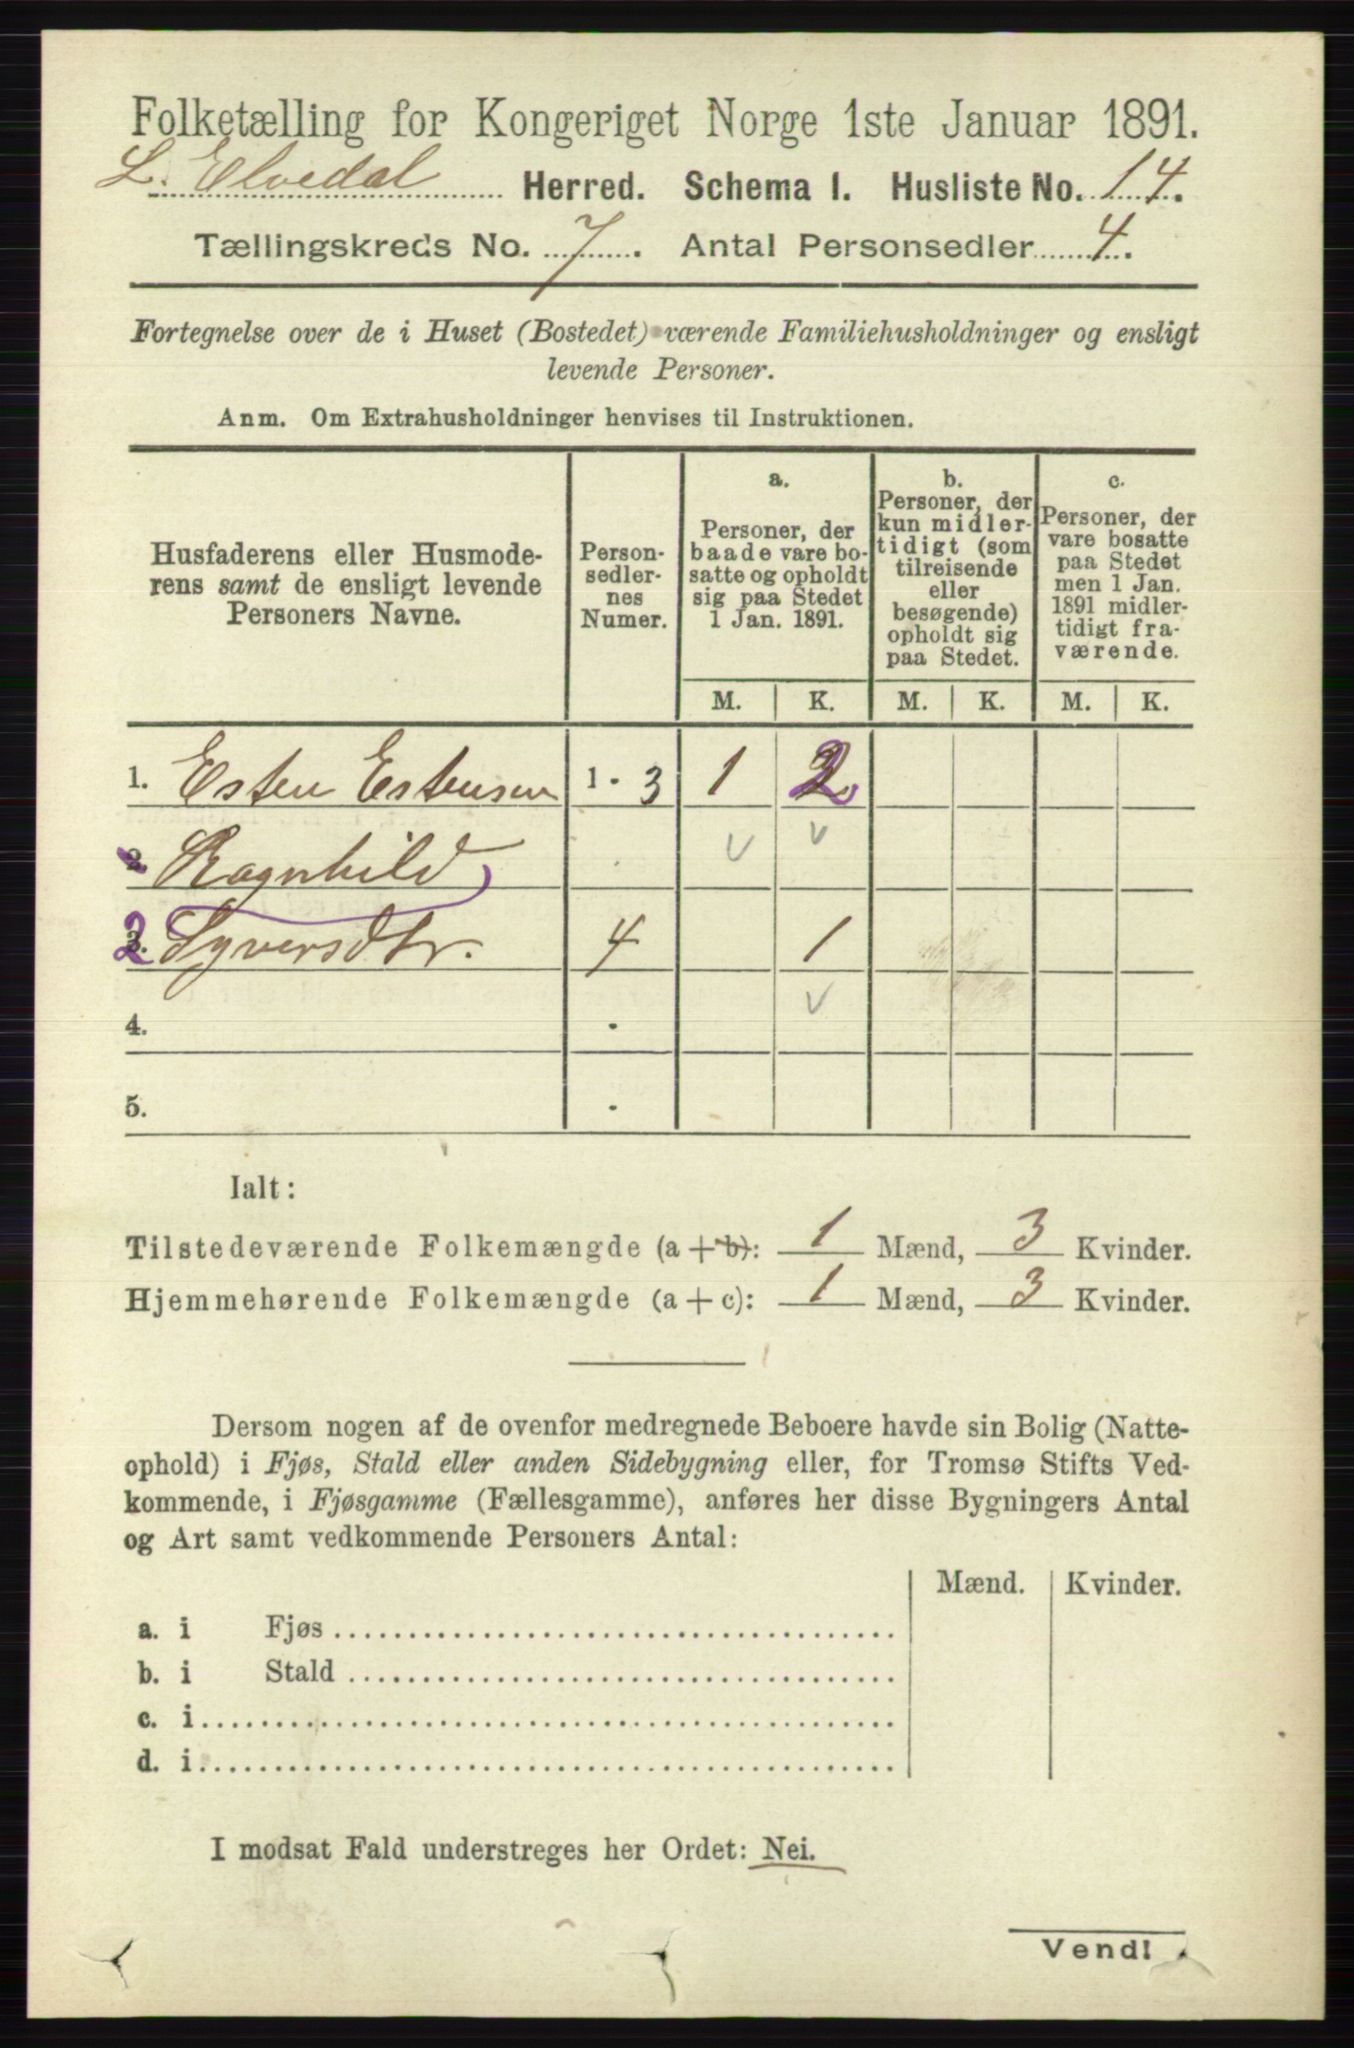 Folketælling for Kongeriget Norge 1ste Januar 1891.
L. Elvedal Herred. Schema 1. Husliste No. 14.
Tællingskreds No. 7. Antal Personsedler 4.
Fortegnelse over de i Huset (Bostedet) værende Familiehusholdninger og ensligt
levende Personer.
Anm. Om Extrahusholdninger henvises til Instruktionen.
Husfaderens eller Husmode-
rens samt de ensligt levende
Personers Navne.
Person-
sedler-
nes
Numer.
a.
Personer, der
baade vare bo-
satte og opholdt
sig paa Stedet
1 Jan. 1891.
b.
Personer, der
kun midler-
tidigt (som
tilreisende
eller
besøgende)
opholdt sig
paa Stedet.
c.
Personer, der
vare bosatte
paa Stedet
men 1 Jan.
1891 midler-
tidigt fra-
værende.
M. K. M. K. M. K.
1. Esten Estensen 1 - 3 1 2
2. Ragnhild
2 3. Syversdtr. 4 1
4.
5.
Ialt:
Tilstedeværende Folkemængde (a + b): 1 Mænd, 3 Kvinder.
Hjemmehørende Folkemængde (a + c): 1 Mænd, 3 Kvinder.
Dersom nogen af de ovenfor medregnede Beboere havde sin Bolig (Natte-
ophold) i Fjøs, Stald eller anden Sidebygning eller, for Tromsø Stifts Ved-
kommende, i Fjøsgamme (Fællesgamme), anføres her disse Bygningers Antal
og Art samt vedkommende Personers Antal:
Mænd. Kvinder.
a. i Fjøs
b. i Stald
c. i
d. i
I modsat Fald understreges her Ordet: Nei.
Vend!